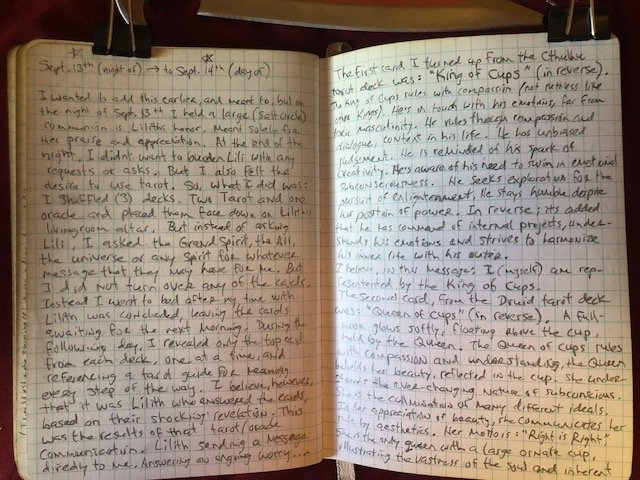 Sept. 13th (night of) → to Sept. 14th (day of)
I wanted to add this earlier, and meant to, but on
the night of Sept. 13th I held a large (salt circle)
communion is Liliths honor. Meant solely for
her praise and appreciation. At the end of the
night, I didnt want to burden Lili with any
requests or asks. But I also felt the
desire to use tarot. So, what I did was:
I shuffled (3) decks. Two Tarot and one
oracle and placed them face down on Liliths
livingroom altar. But instead of asking
Lili, I asked the Grand Spirit, the All,
the universe or any Spirit for whatever
message that they may have for me. But
I did not turn over any of the cards.
Instead I went to bed after my time with
Lilith was concluded, leaving the cards
awaiting for the next morning. During the
following day, I revealed only the top card
from each deck, one at a time, and
referencing a tarot guide for meaning
every step of the way. I believe, however,
that it was Lilith who answered the cards,
based on their shocking revelation. This
was the results of that tarot/oracle
communication. Lilith sending a message
direcly to me. Answering an ongoing worry....
The first card I turned up from the Cthulhu
tarot deck was: "King of Cups" (in reverse).
The King of Cups rules with compassion (not ruthless like
other Kings). He's in touch with his emotions, far from
toxic masculinity. He rules through compassion and
dialogue, content in his life. He has unbiased
judgement. He is reminded of his spark of
creativity. He's aware of his need to swim in emotional
subconsciousness. He seeks exploration for the
pursuit of enlightenment. He stays humble despite
his position of power. In reverse; its added
that he has command of internal projects, under-
stands his emotions and strives to harmonize
his inner life with his outer.
I believe, in this message; I (myself) am rep-
resented by the King of Cups.
The second card, from the Druid tarot deck
was: "Queen of Cups" (in reverse). A full-
moon glows softly, floating above the cup,
held by the Queen. The Queen of Cups rules
with compassion and understanding, the Queen
beholds her beauty, reflected in the cup. She under-
stands the ever-changing nature of subconscious.
She is the culmination of many different ideals.
In her appreciation of beauty, she communicates her
rule by aesthetics. Her motto is: "Right is Right"
She's the only queen with a large ornate cup,
illustrating the vastness of the soul and inherent